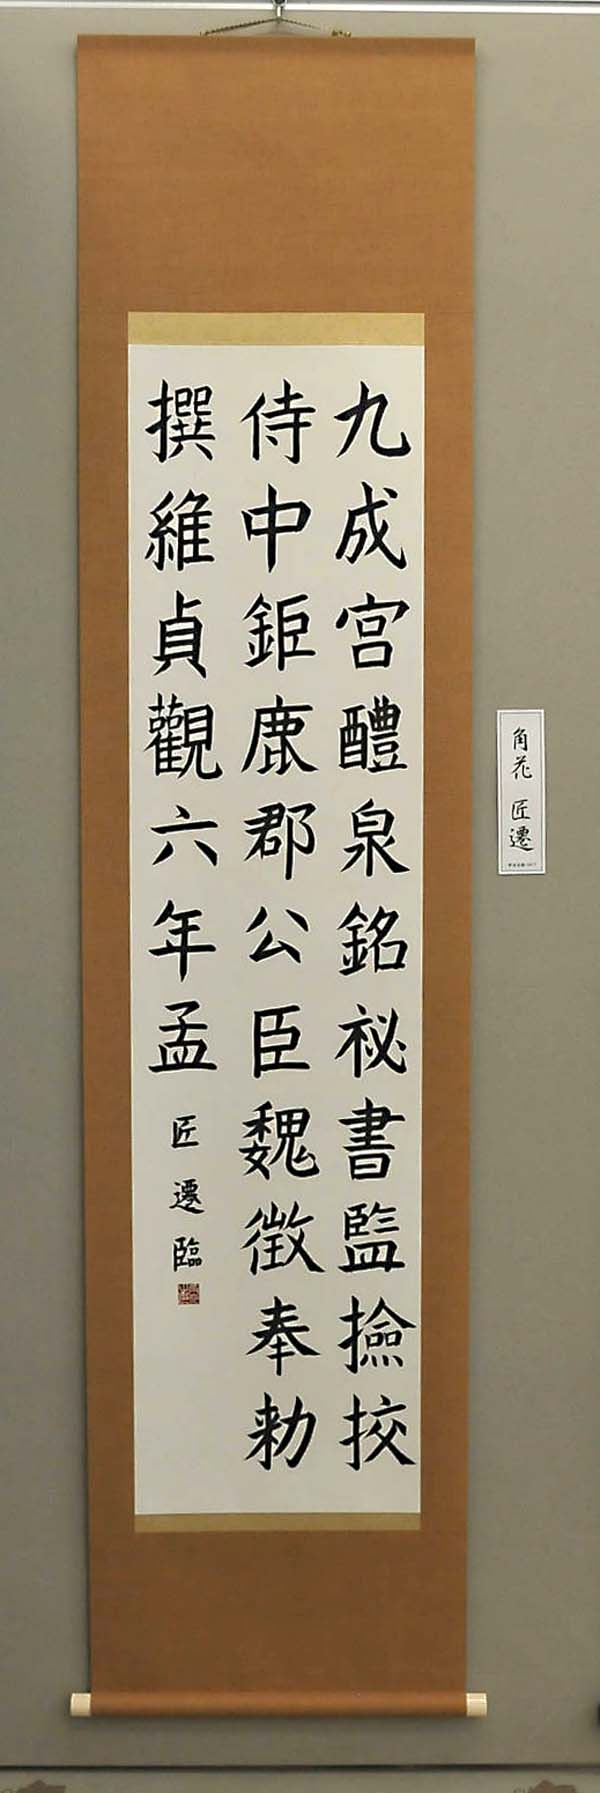 九成宮醴泉銘祕書監撿挍
侍中鉅鹿郡公臣魏徴奉勅
撰維貞觀六年孟
匠遷臨
角花 匠遷